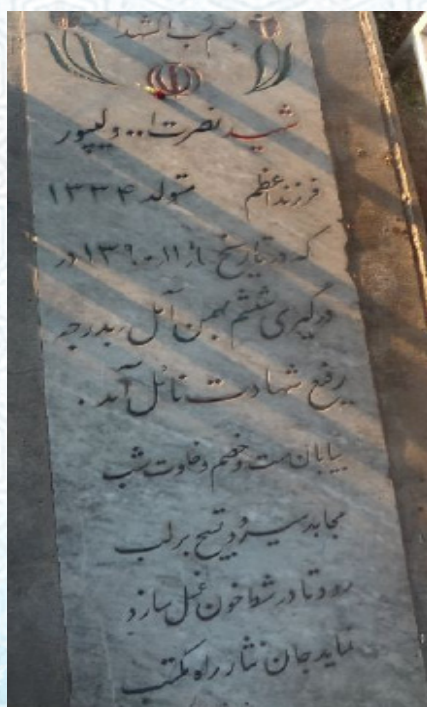 بسم رب الشهدا
شهید نصرت ا.. ولیپور
فرزند اعظم متولد ۱۳۳۴
که در تاریخ ۱۳۶۰/۱۱/۶ در
درگیری ششم بهمن آمل بدرجه
رفیع شهادت نائل آمد.
بیابان ست و خصم و خلوت شب
مجاهد میرود تسبیح بر لب
رود تا در شط خون غسل سازد
نماید جان نثار راه مکتب